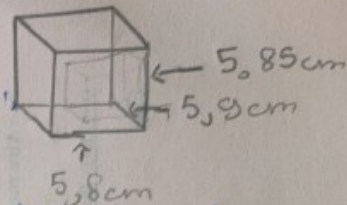 5.85cm
5,9cm
5,8cm